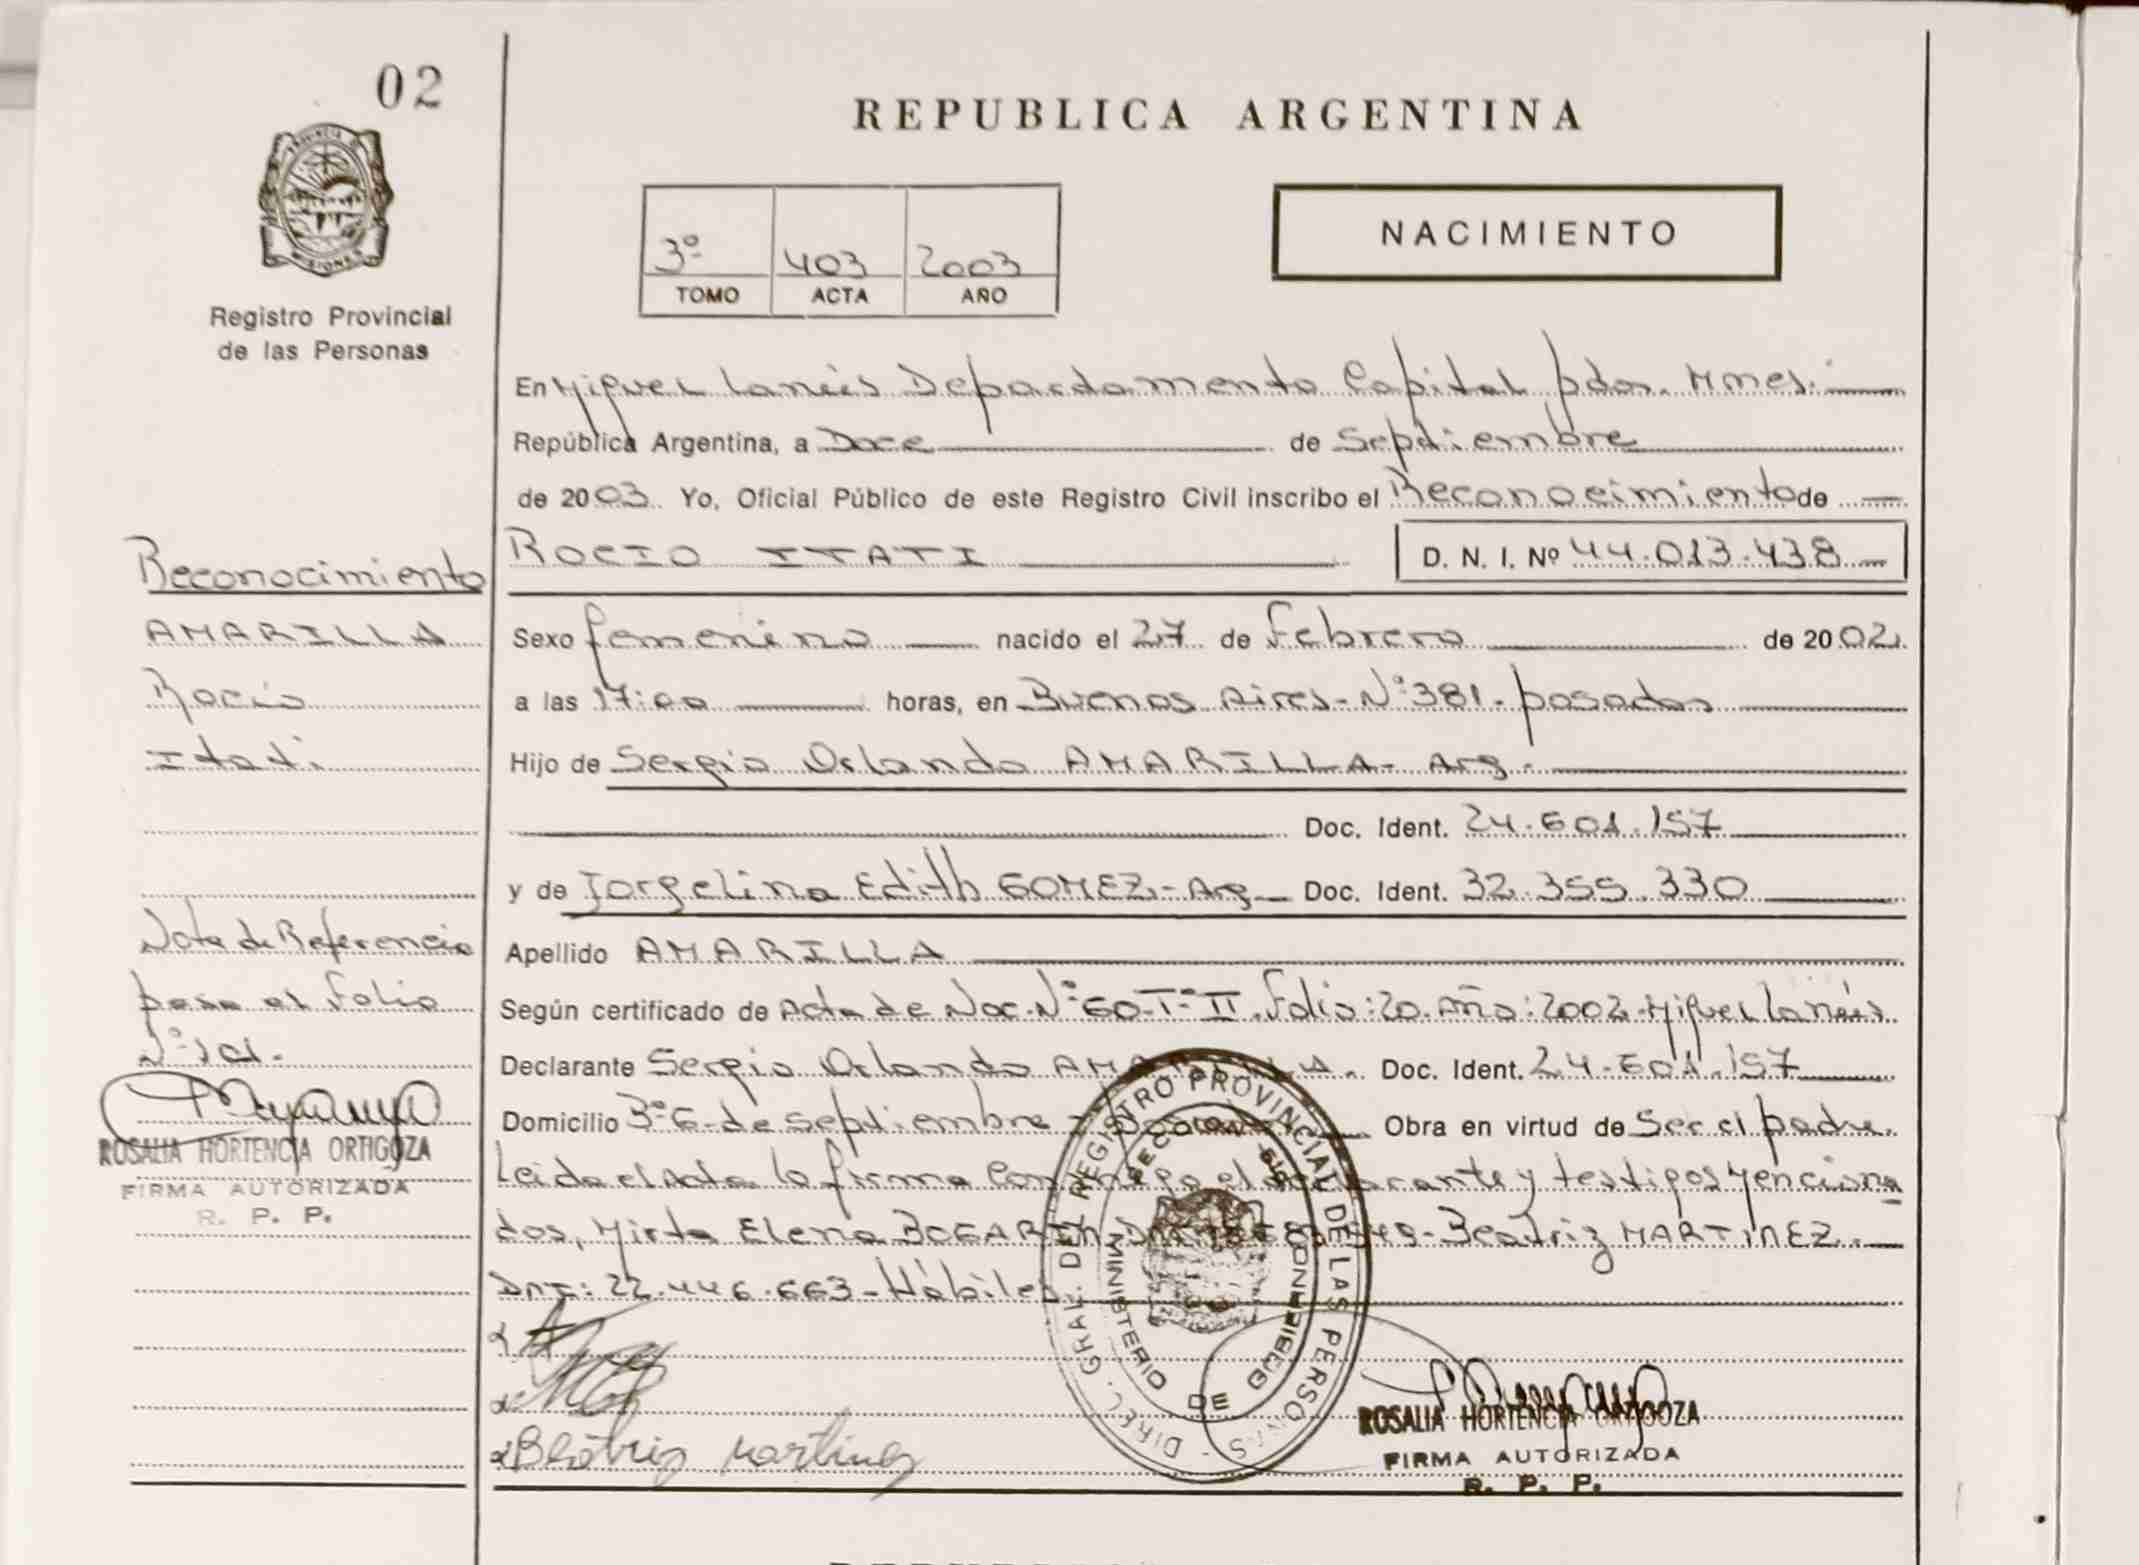 02
PROVINCIA
MISIONES
Registro Provincial
de las Personas
REPUBLICA ARGENTINA
3º 403 2003
TOMO ACTA AÑO
NACIMIENTO
En Miguel Lanús Departamento Capital pdas. Mnes.
República Argentina, a Doce de Septiembre
de 2003 Yo, Oficial Público de este Registro Civil inscribo el Reconocimiento de
ROCIO ITATI D. N. I. Nº 44.013.438
Sexo femenino nacido el 27 de Febrero de 2002
a las 17:00 horas, en Buenos Aires - Nº 381 - posadas
Hijo de Sergio Orlando AMARILLA - Arg.
Doc. Ident. 24.601.157
y de Jorgelina Edith GOMEZ - Arg Doc. Ident. 32.355.330
Apellido AMARILLA
Según certificado de Acta de Nac. Nº 60 - Tº II. Folio: 20. Año: 2002 - Miguel Lanús
Declarante Sergio Orlando AMARILLA. Doc. Ident. 24.601.157
Domicilio 3º 6 de Septiembre Obra en virtud de Ser el padre.
Leida el Acta la firma Conmigo el declarante y testigos Menciona
dos, Mirta Elena BOGARIN - Beatriz MARTINEZ.
DNI: 22.446.663 - Hábiles
Beatriz Martinez
Reconocimiento
AMARILLA
Rocio
Itati
Nota de Referencia
pasa al Folio
Nº 101.
ROSALIA HORTENCIA ORTIGOZA
FIRMA AUTORIZADA
R. P. P.
DIREC. GRAL. DEL REGISTRO PROVINCIAL DE LAS PERSONAS
MINISTERIO DE GOBIERNO
ROSALIA HORTENCIA ORTIGOZA
FIRMA AUTORIZADA
R. P. P.